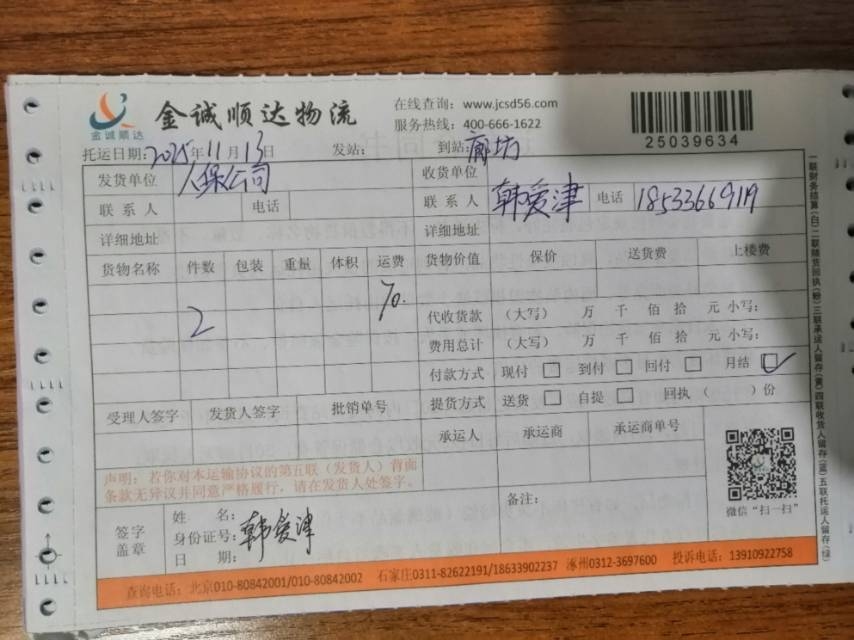 金诚顺达
金诚顺达物流
在线查询：www.jcsd56.com
服务热线：400-666-1622
25039634
托运日期：2025年11月13日 发站： 到站：廊坊
发货单位 人保公司 收货单位
联系人 电话 联系人 韩爱津 电话 18533669119
详细地址 详细地址
货物名称 件数 包装 重量 体积 运费 货物价值 保价 送货费 上楼费
2 70.
代收货款 （大写） 万 千 佰 拾 元 小写：
费用总计 （大写） 万 千 佰 拾 元 小写：
付款方式 现付 □ 到付 □ 回付 □ 月结 ☑
受理人签字 发货人签字 批销单号 提货方式 送货 □ 自提 □ 回执（ ）份
承运人 承运商 承运商单号
声明：若你对本运输协议的第五联（发货人）背面
条款无异议并同意严格履行，请在发货人处签字。
微信“扫一扫”
签字
盖章
姓 名：
身份证号：韩爱津
日 期：
备注：
查询电话：北京010-80842001/010-80842002 石家庄0311-82622191/18633902237 涿州0312-3697600 投诉电话：13910922758
一联财务结算(白)二联随货回执(粉)三联承运人留存(黄)四联收货人留存(蓝)五联托运人留存(绿)